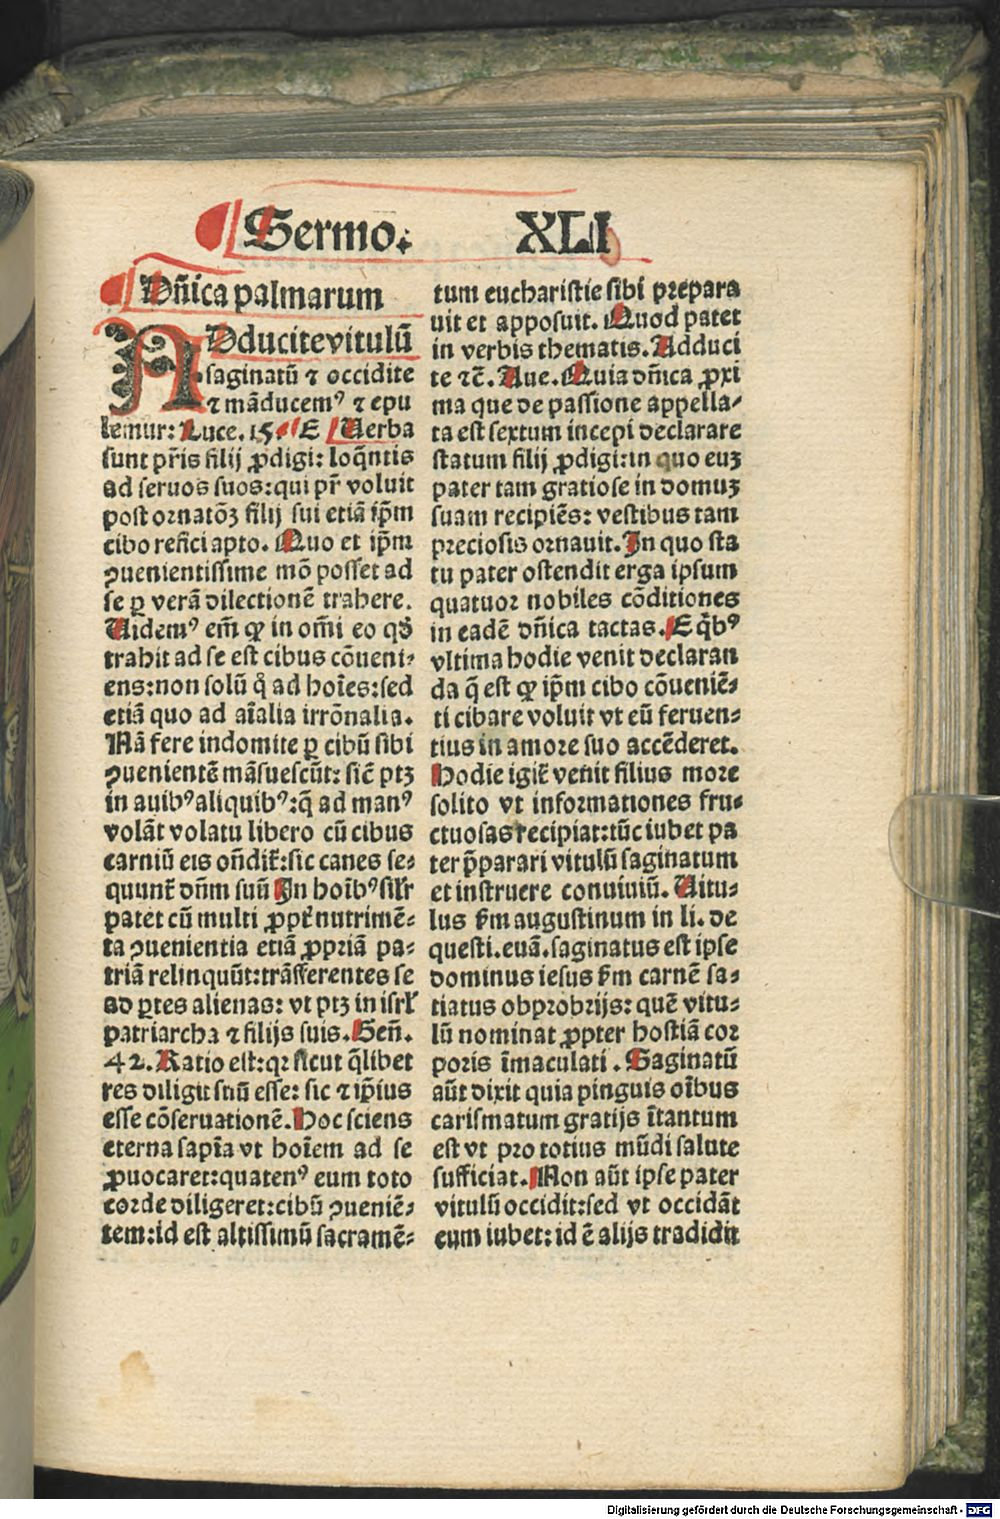 Sermo. XLI
Dñica palmarum
ADducite vitulū
saginatū ⁊ occidite
⁊ māducemꝰ ⁊ epu
lemur: Luce. 15. E Uerba
sunt pr̄is filij ꝓdigi: loq̄ntis
ad seruos suos: qui pr̄ voluit
post ornatōꝫ filij sui etiā ip̄m
cibo refici apto. Quo et ip̄m
ꝯuenientissime mō posset ad
se ꝑ verā dilectionē trahere.
Uidemꝰ em̄ ꝙ in om̄i eo qd̓
trahit ad se est cibus cōueni⸗
ens: non solū q̊ ad hoīes: sed
etiā quo ad aīalia irrōnalia.
Nā fere indomite ꝑ cibū sibi
ꝯuenientē māsuescūt: sic̄ ptꝫ
in auibꝰ aliquibꝰ: q̄ ad manꝰ
volāt volatu libero cū cibus
carniū eis oñdit̄: sic canes se⸗
quunt̄ dñm suū In hoībꝰ sil̓r
patet cū multi ꝓpt̄ nutrimē⸗
ta ꝯuenientia etiā ꝓpriā pa⸗
triā relinquūt: trāsferentes se
ad ꝑtes alienas: vt ptꝫ in isrl̓
patriarcha ⁊ filijs suis. Gen̄.
42. Ratio est: qꝛ sicut q̄libet
res diligit suū esse: sic ⁊ ip̄ius
esse cōseruationē. Hoc sciens
eterna sapīa vt hoīem ad se
ꝓuocaret: quatenꝰ eum toto
corde diligeret: cibū ꝯueniē⸗
tem: id est altissimū sacramē⸗
tum eucharistie sibi prepara
uit et apposuit. Quod patet
in verbis thematis. Adduci
te ⁊c̄. Aue. Quia dñica ꝓxi
ma que de passione appella⸗
ta est sextum incepi declarare
statum filij ꝓdigi: in quo euꝫ
pater tam gratiose in domuꝫ
suam recipiēs: vestibus tam
preciosis ornauit. In quo sta
tu pater ostendit erga ipsum
quatuor nobiles cōditiones
in eadē dñica tactas. E q̄bꝰ
vltima hodie venit declaran
da q̄ est ꝙ ip̄m cibo cōueniē⸗
ti cibare voluit vt eū feruen⸗
tius in amore suo accēderet.
Hodie igit̄ venit filius more
solito vt informationes fru⸗
ctuosas recipiat: tūc iubet pa
ter p̄parari vitulū saginatum
et instruere conuiuiū. Uitu⸗
lus ẜm augustinum in li. de
questi. euā. saginatus est ipse
dominus iesus ẜm carnē sa⸗
tiatus obprobrijs: quē vitu⸗
lū nominat ꝓpter hostiā cor
poris īmaculati. Saginatū
aūt dixit quia pinguis oībus
carismatum gratijs ītantum
est vt pro totius mūdi salute
sufficiat. Non aūt ipse pater
vitulū occidit: sed vt occidāt
eum iubet: id ē alijs tradidit
Digitalisierung gefördert durch die Deutsche Forschungsgemeinschaft - DFG